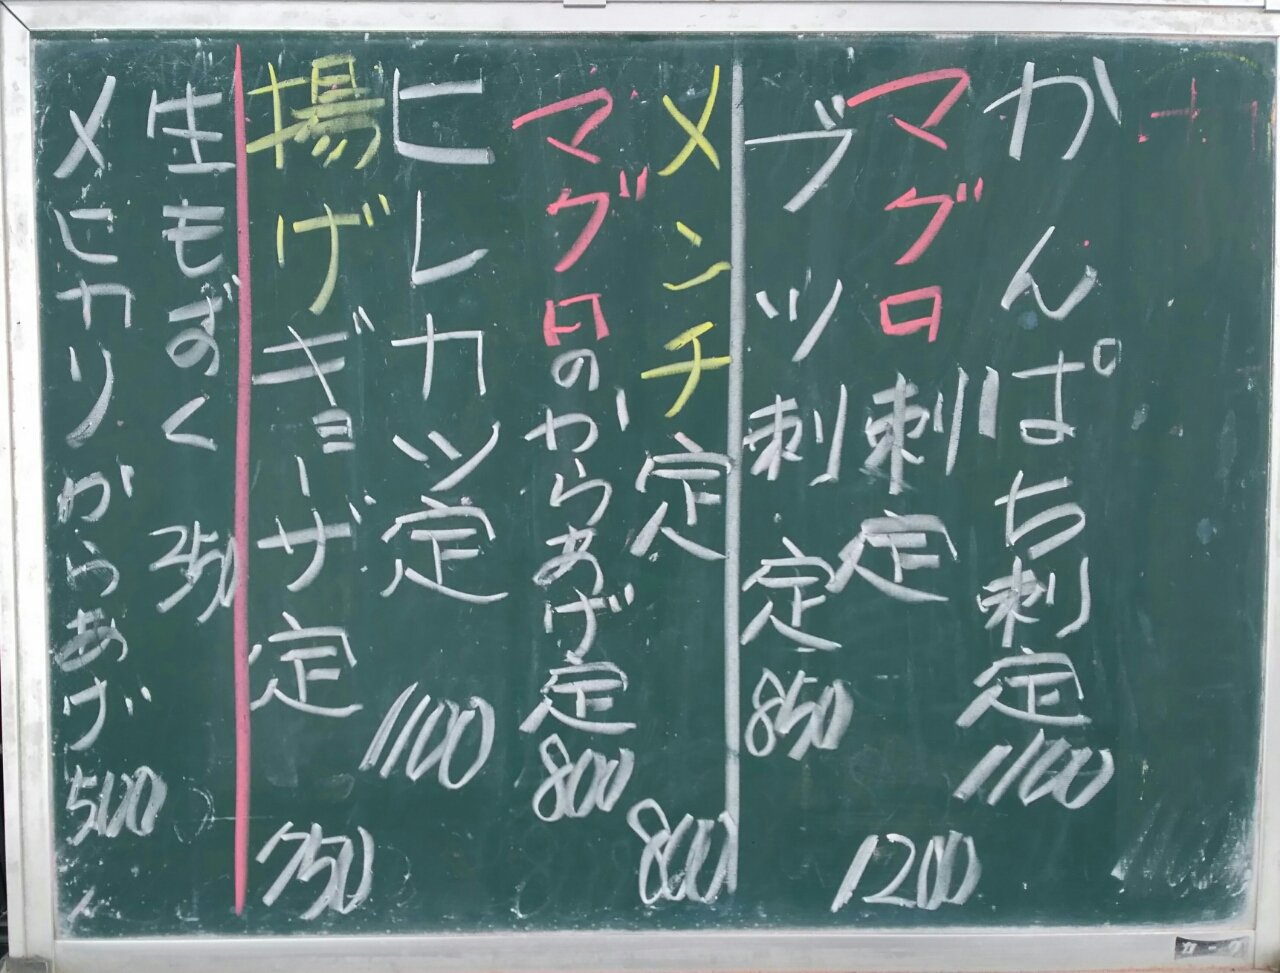 かんぱち刺定 1100
マグロ刺定 1200
ブツ刺定 850
メンチ定 800
マグロのからあげ定 800
ヒレカツ定 1100
揚げギョーザ定 750
生もずく 250
メヒカリからあげ 500